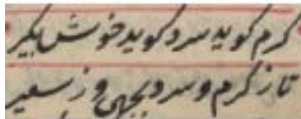 کرم کوید سرد کوید خوش بکیر
تا ز کرم و سرد بجهی وز سعیر